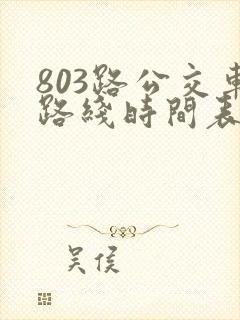 803路公交車
路綫時間表
吴侯